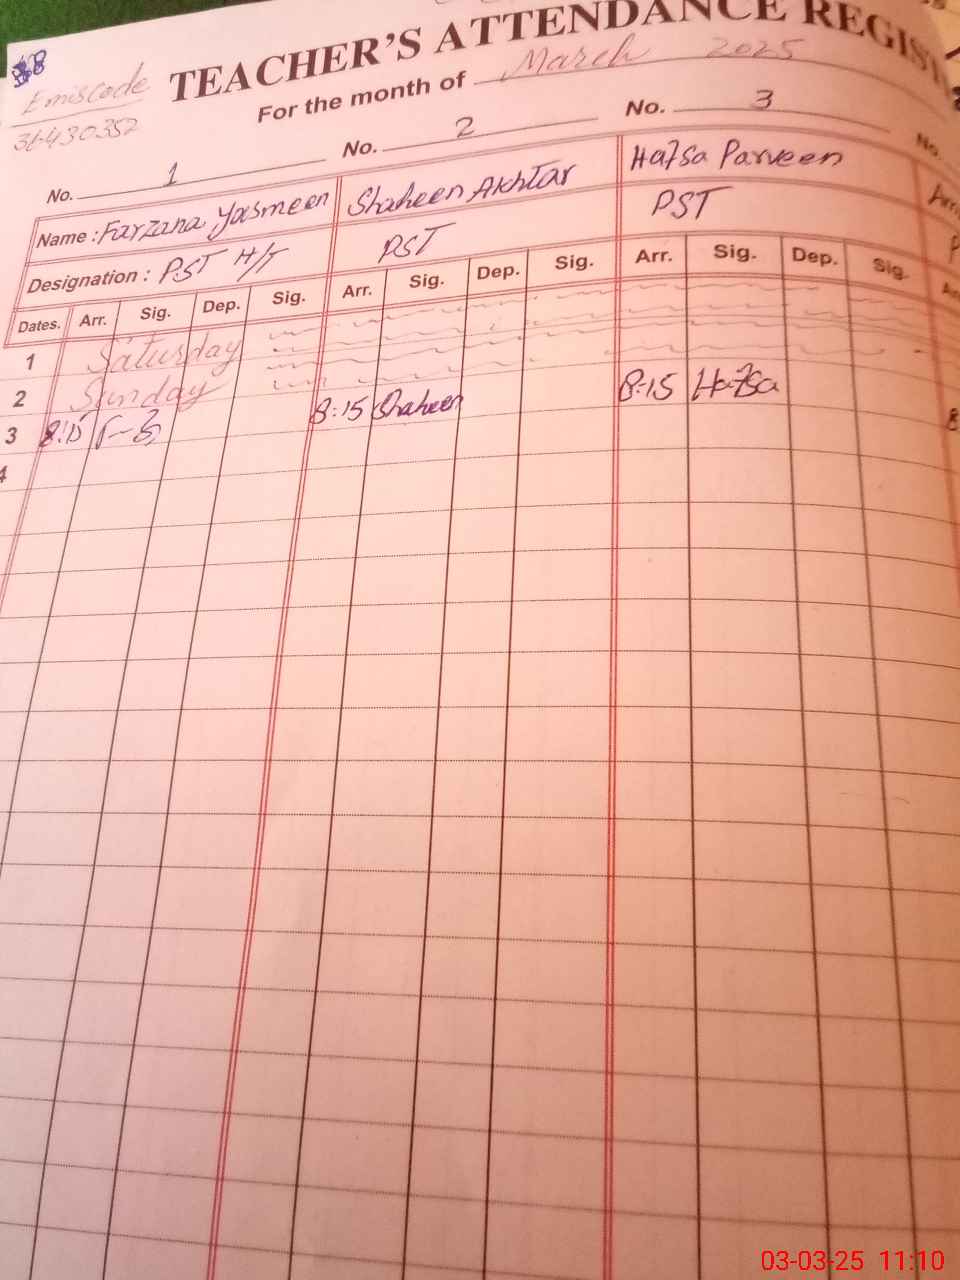 Emiscode
31430352
TEACHER'S ATTENDANCE REGIST
For the month of March 2025
No. 1 No. 2 No. 3 No.
Name : Farzana Yasmeen Shaheen Akhtar Hafsa Parveen
Designation : PST H/T PST PST
Dates. Arr. Sig. Dep. Sig. Arr. Sig. Dep. Sig. Arr. Sig. Dep. Sig.
1 Saturday
2 Sunday
3 8:15 8:15 Shaheen 8:15 Hafsa
4
03-03-25 11:10